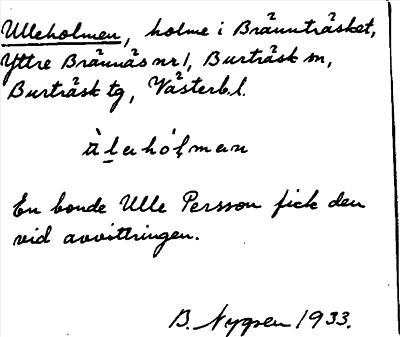 Ulleholmen, holme i Brännträsket,
Yttre Brännäs nr 1, Burträsk sn,
Burträsk tg, Västerb.l.
En bonde Ulle Persson fick den
vid avvittringen.
B. Nygren 1933.